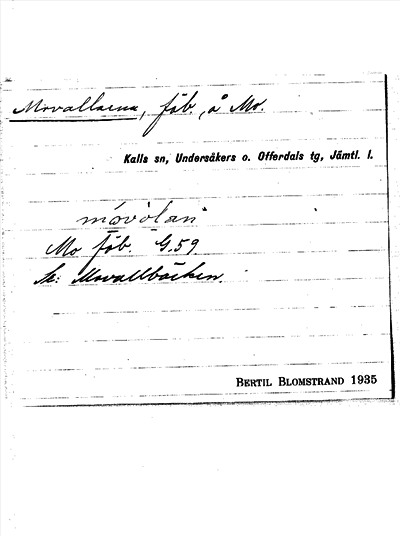 Movallarna, fäb., å Mo.
Kalls sn, Undersåkers o. Offerdals tg, Jämtl. l.
móvòlan
Mo fäb. G.59
Se: Movallbäcken.
BERTIL BLOMSTRAND 1935